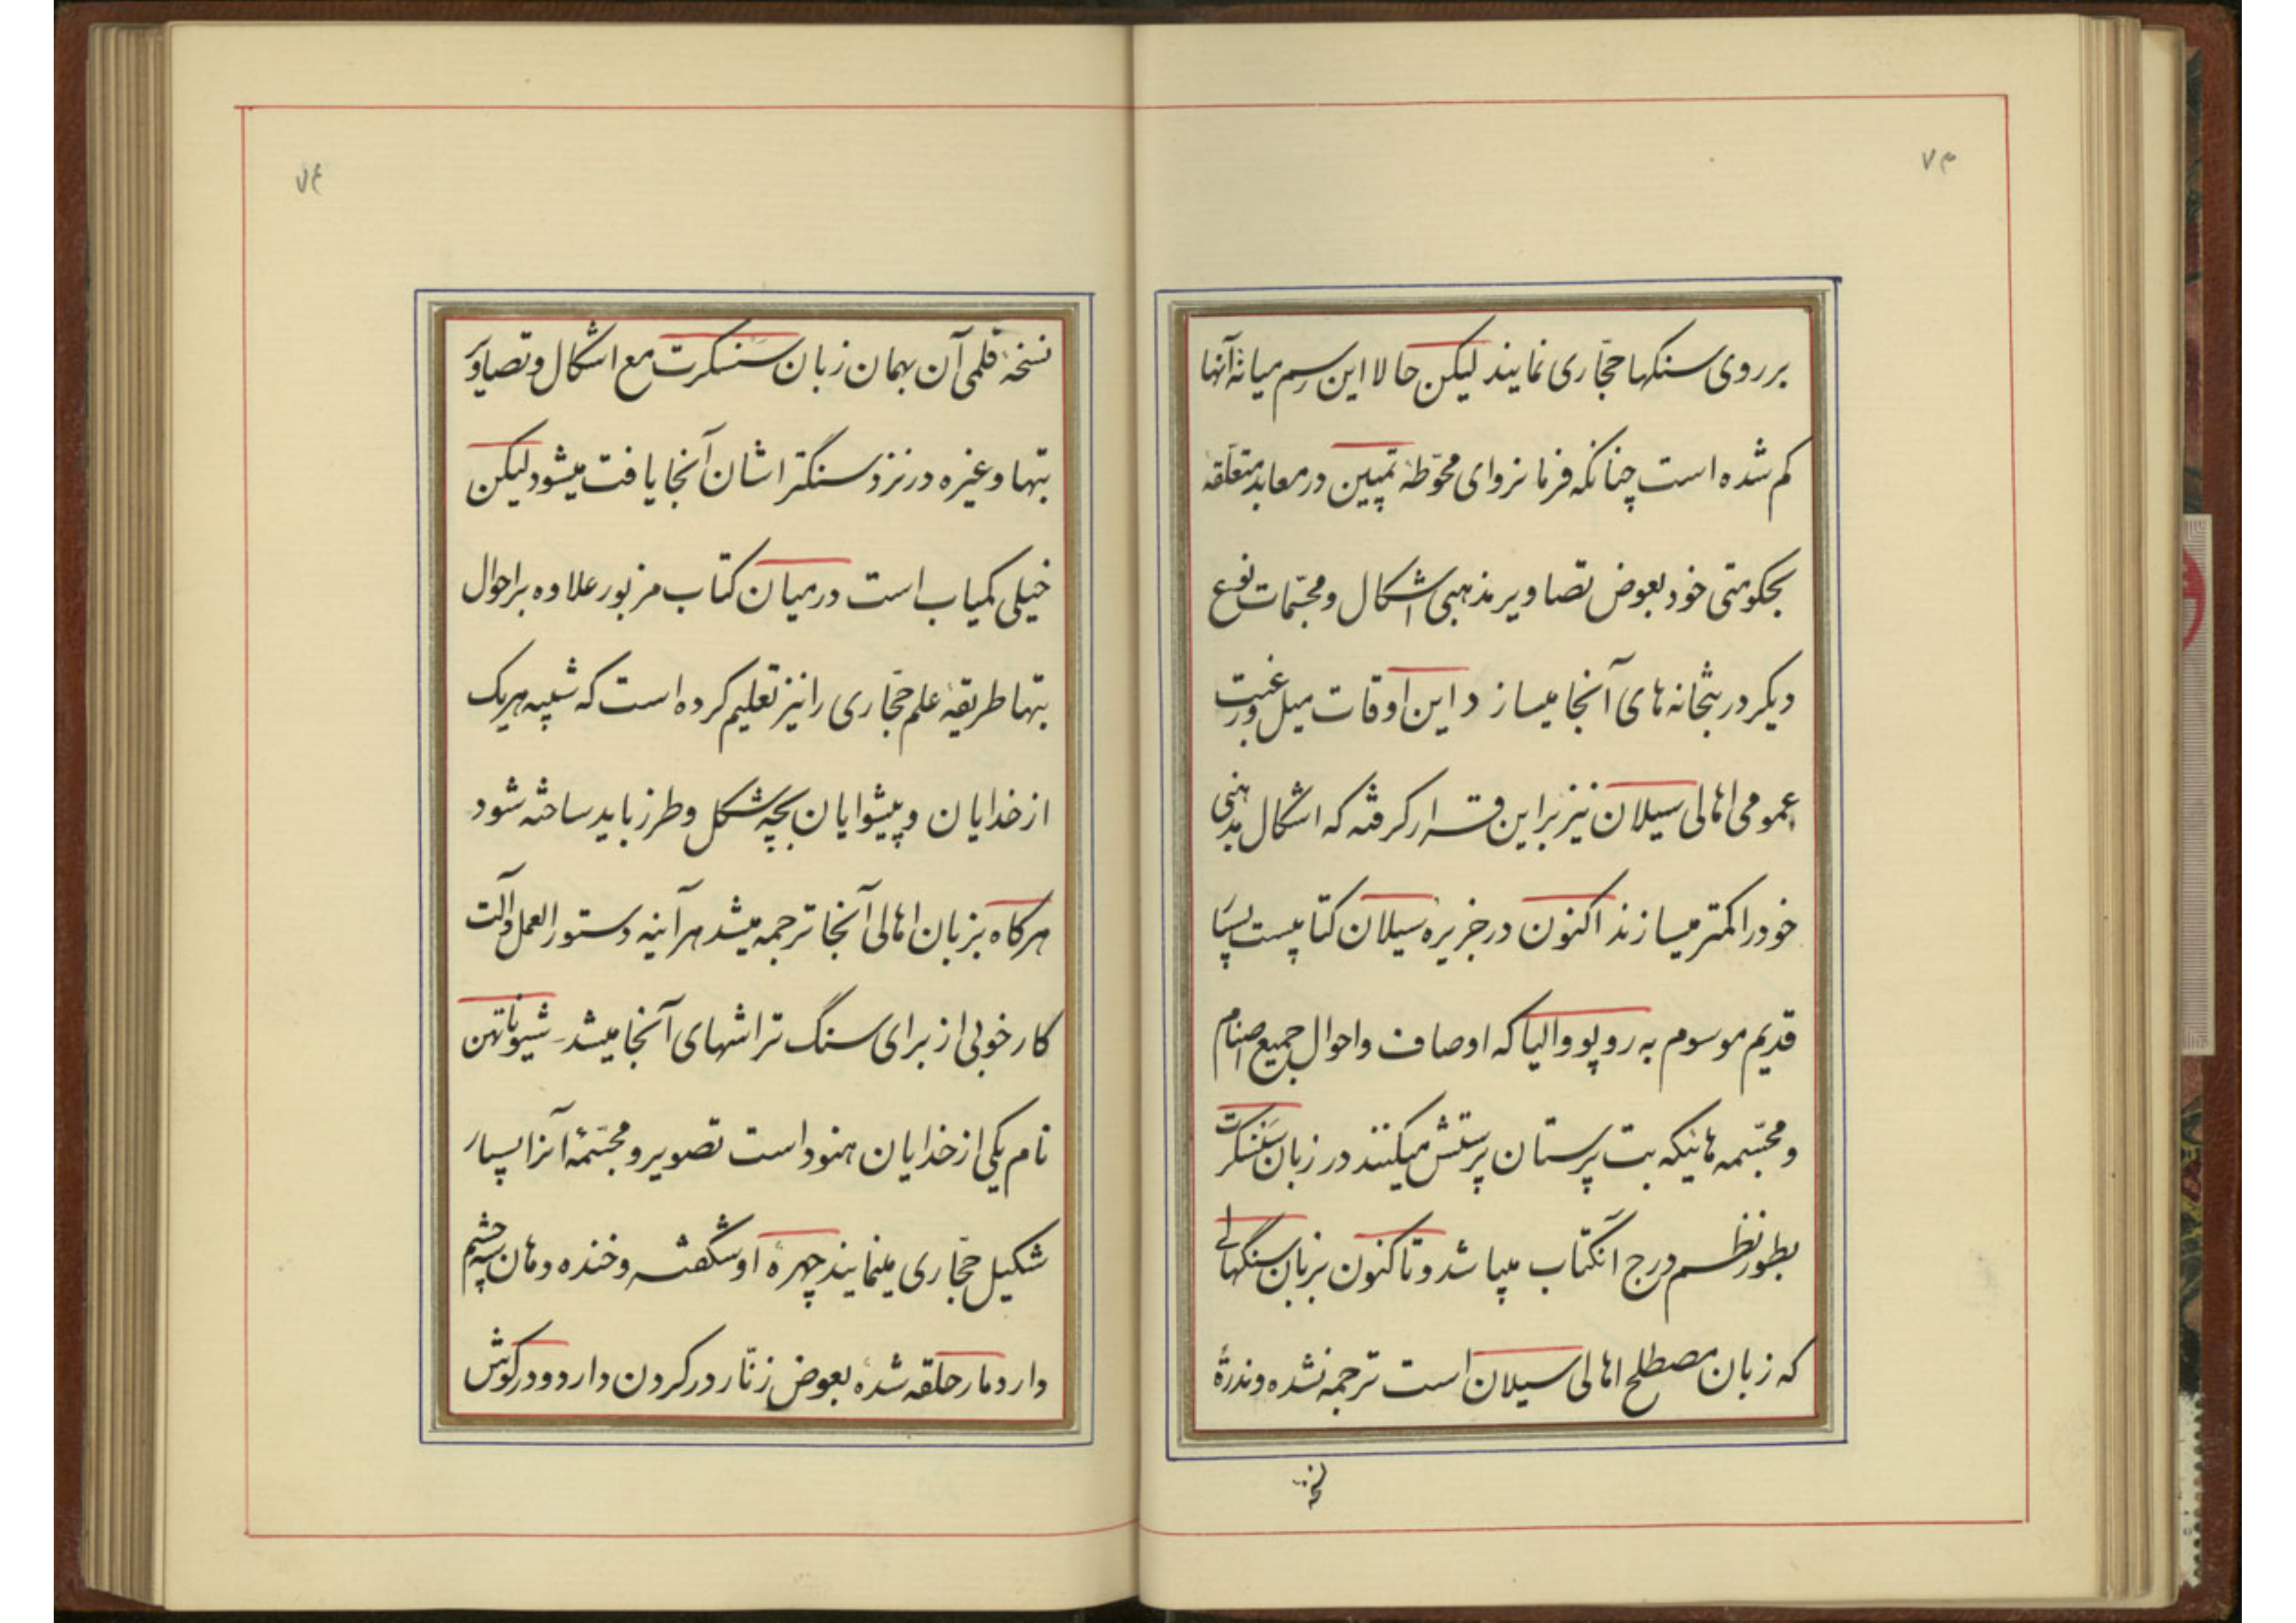 ۷۳
بر روی سنکها حجّاری نمایند لیکن حالا این رسم میانهٔ آنها
کم شده است چنانکه فرمانروای محوّطهٔ تمپین در معابد متعلّقه
بحکومتی خود بعوض تصاویر مذهبی اشکال و مجسّمات نوع
دیکر در بتخانه های آنجا میسازد این اوقات میل و رغبت
عمومی اهالی سیلان نیز بر این قرار کرفته که اشکال مذهبی
خود را کمتر میسازند اکنون در جزیره سیلان کتابیست بسیار
قدیم موسوم به روپووالیا که اوصاف و احوال جمیع اصنام
و مجسّمه هائیکه بت پرستان پرستش میکنند در زبان سنسکرت
بطور نظم درج آنکتاب میباشد و تاکنون بزبان سنگهالی
که زبان مصطلح اهالی سیلان است ترجمه نشده و ندرةً
نسخهٔ
۷۴
نسخهٔ قلمی آن بهمان زبان سنسکرت مع اشکال و تصاویر
بتها و غیره در نزد سنگتراشان آنجا یافت میشود لیکن
خیلی کمیاب است در میان کتاب مزبور علاوه بر احوال
بتها طریقهٔ علم حجّاری را نیز تعلیم کرده است که شبیه هریک
از خدایان و پیشوایان بچه شکل و طرز باید ساخته شود
هرکاه بزبان اهالی آنجا ترجمه میشد هرآینه دستورالعمل و آلت
کار خوبی از برای سنگ تراشهای آنجا میشد شیوناتهن
نام یکی از خدایان هنود است تصویر و مجسّمهٔ آنرا بسیار
شکیل حجّاری مینمایند چهرهٔ او شکفته و خنده دهان سه چشم
دارد مار حلقه شدهٔ بعوض زنّار در کردن دارد و در کوش